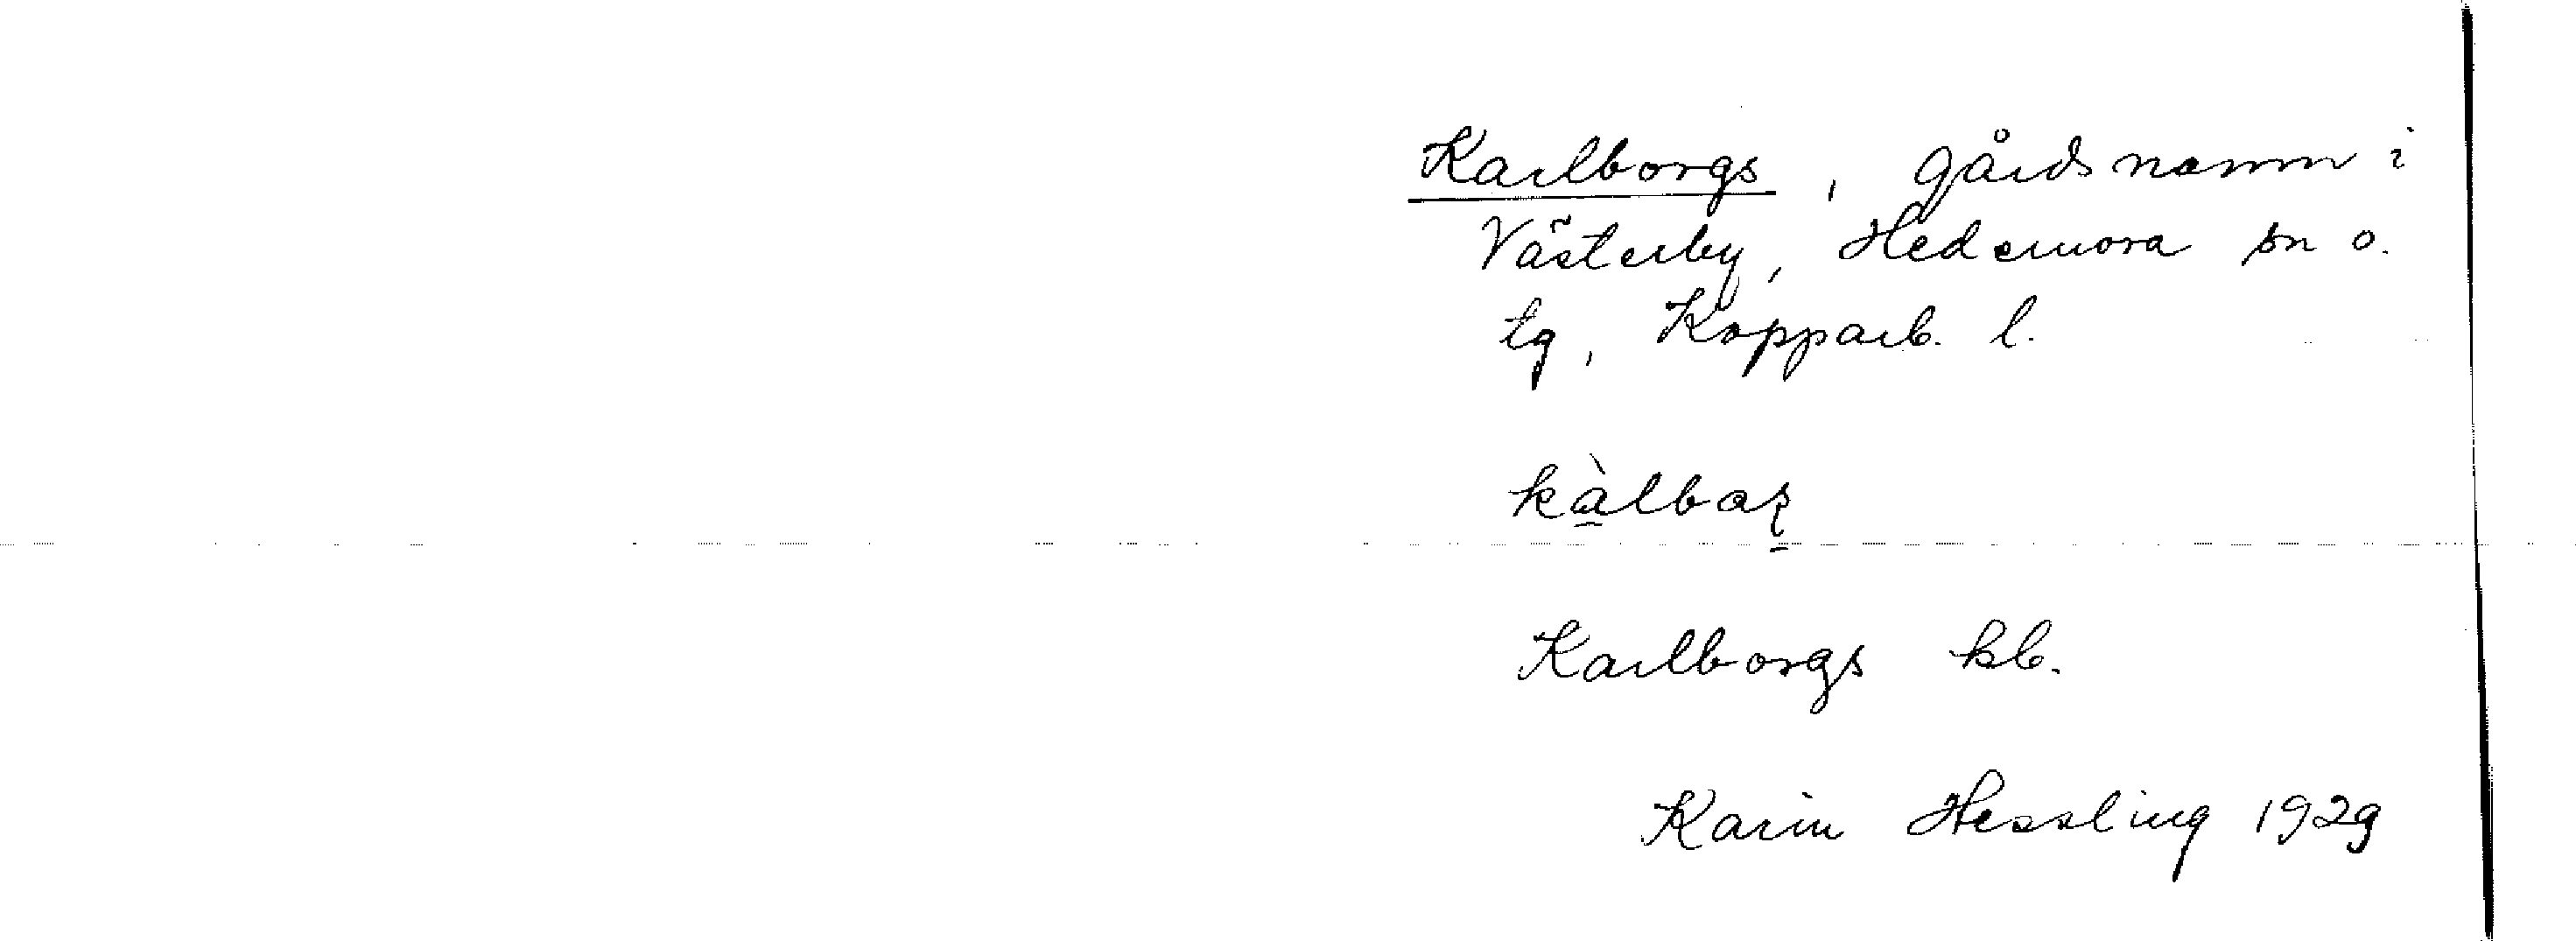 Karlborgs, gårdsnamn i
Västerby, Hedemora sn o.
tg, Kopparb. l.
kàlbaʂ
Karlborgs kb.
Karin Hessling 1929